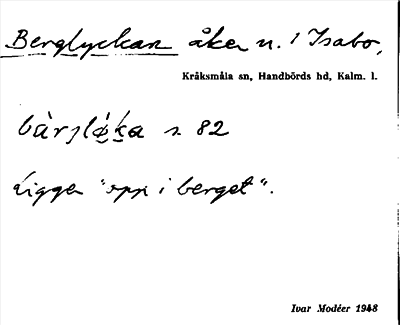 Berglyckan åker n. 1 Isabo,
Kråksmåla sn, Handbörds hd, Kalm. l.
s. 82
Ligger "opp i berget".
Ivar Modéer 1948